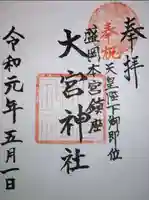 奉拝
奉祝天皇陛下御即位
盛岡本宮鎮座
大宮神社
令和元年五月一日